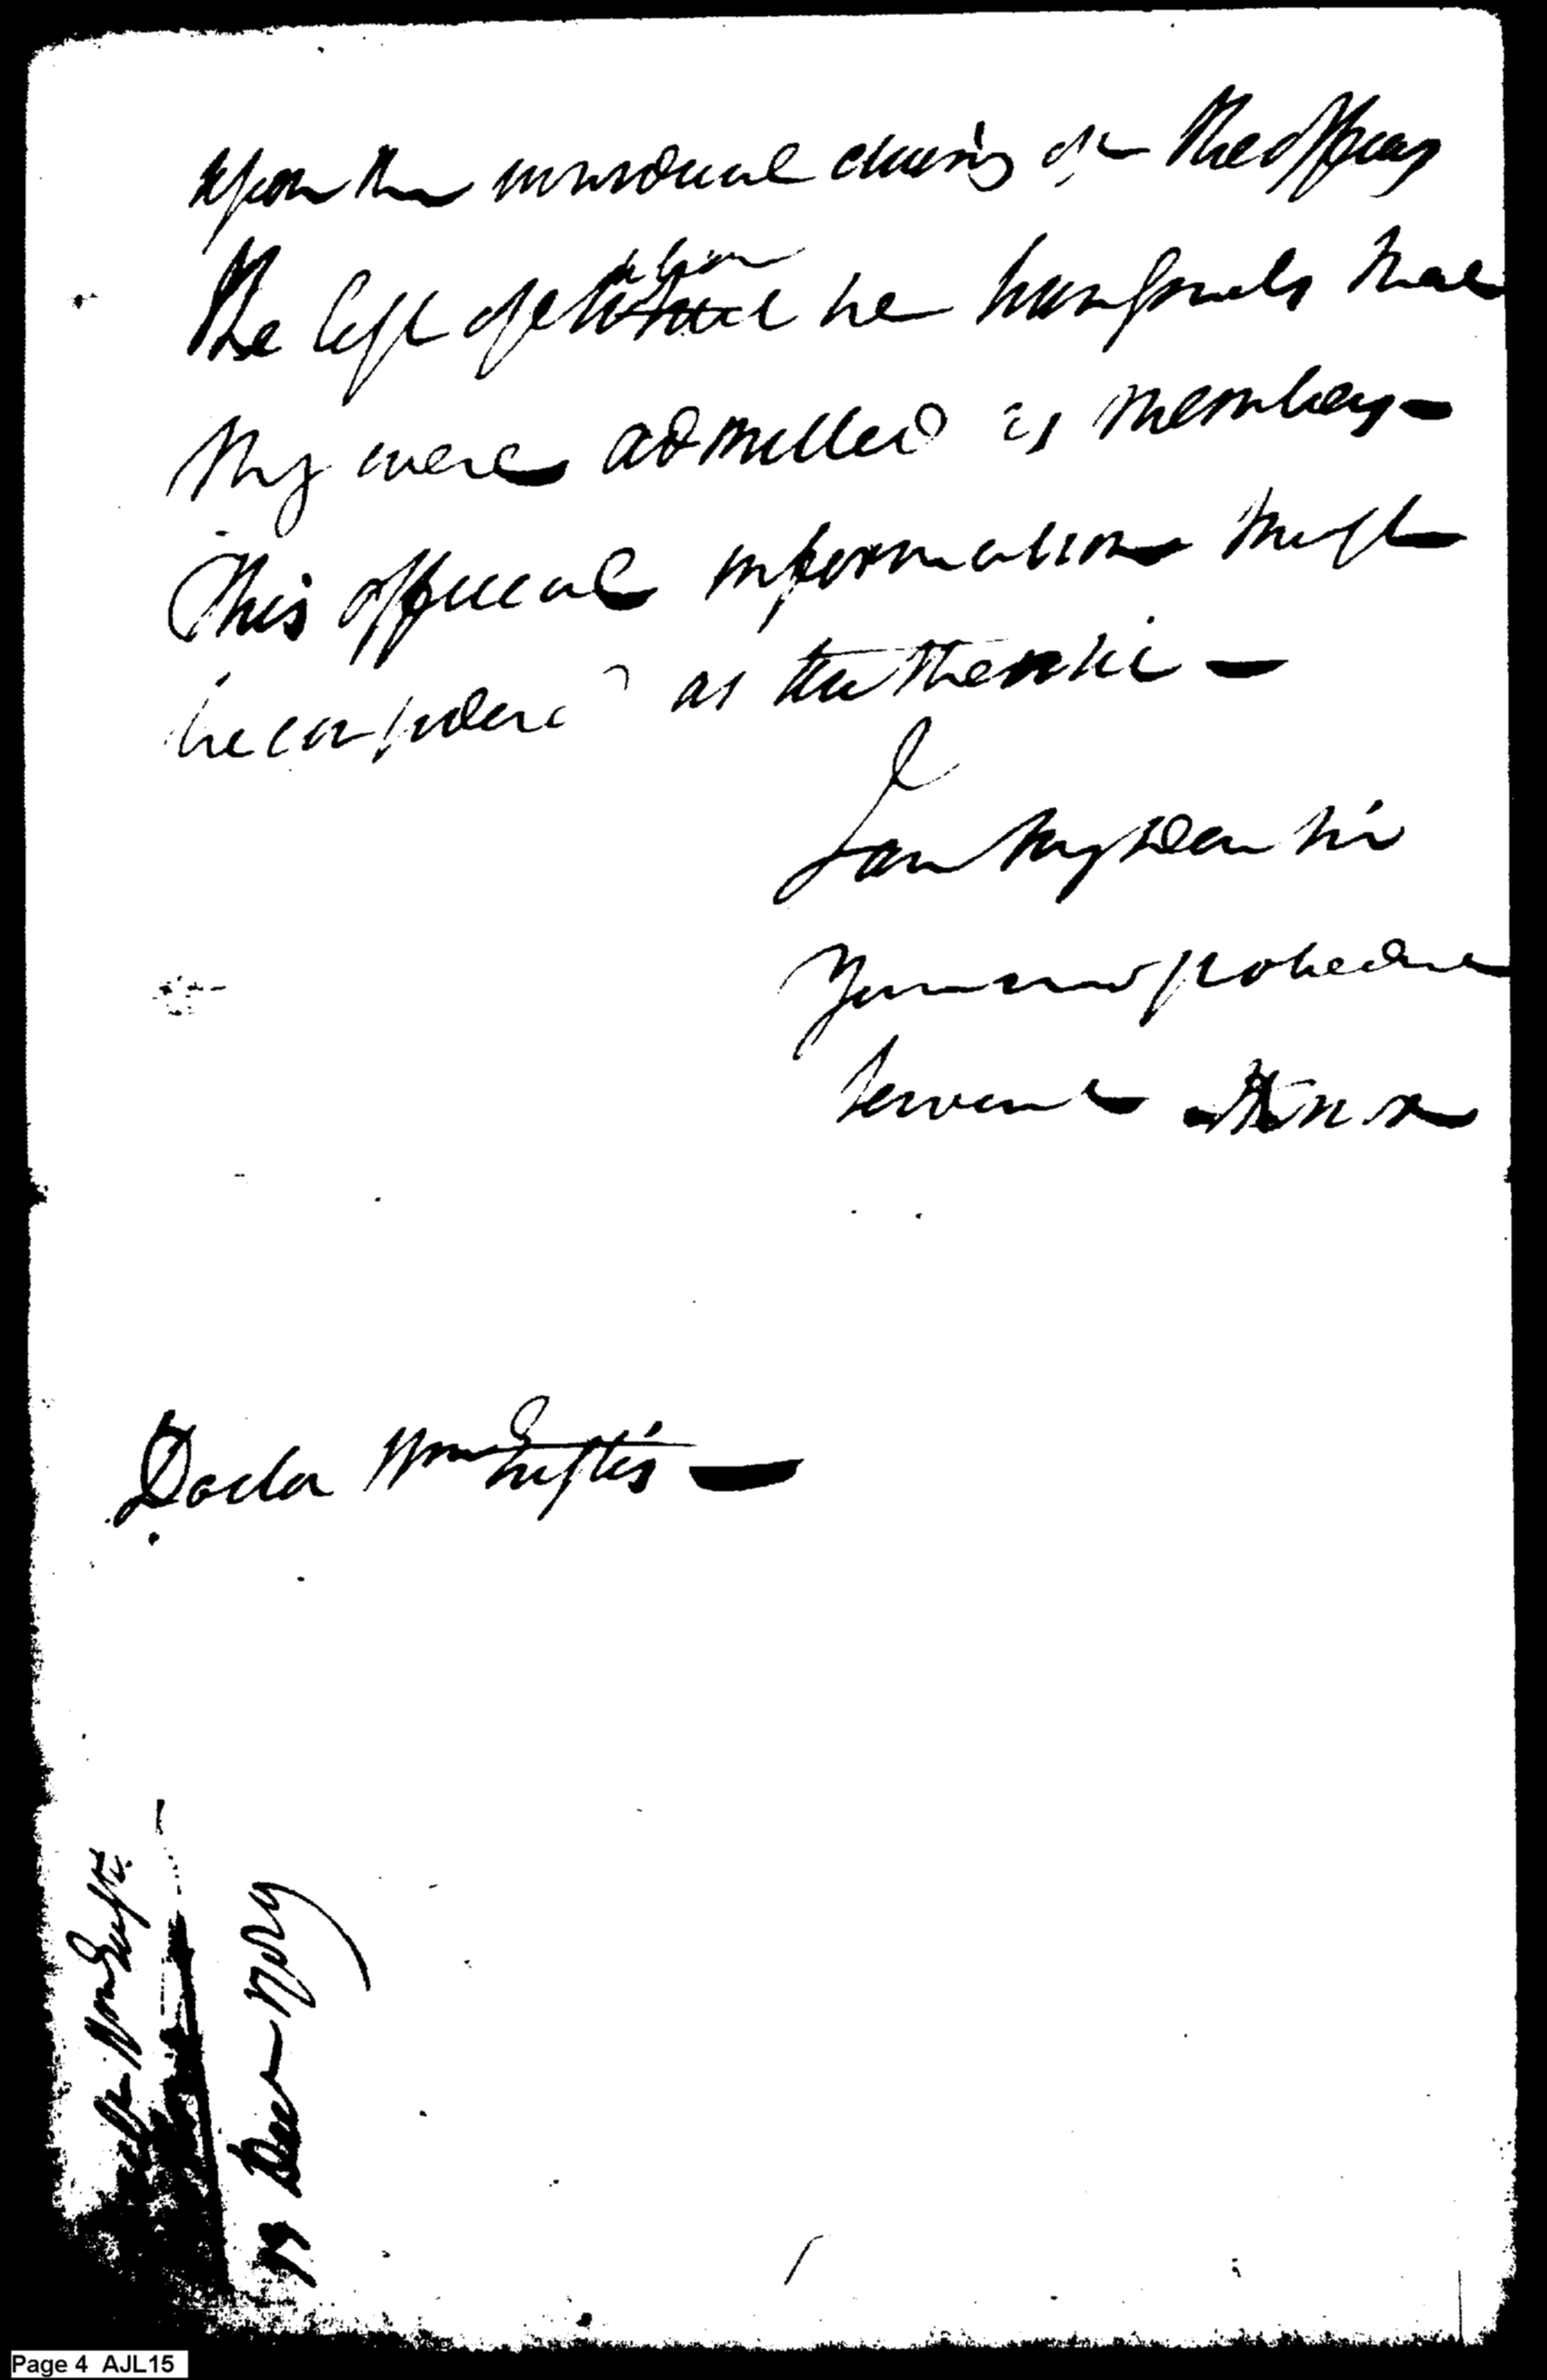 upon the individual claims of the officers
The list of ~~which~~ whom he transmits that
they were admitted as members –
This official information must
be considered as authentic –
I am my Dear Sir
Your most obedient
Servant HKnox
Doctor Wm Eustis –
Wm Eustis
Dec 1789
Page 4 AJL15